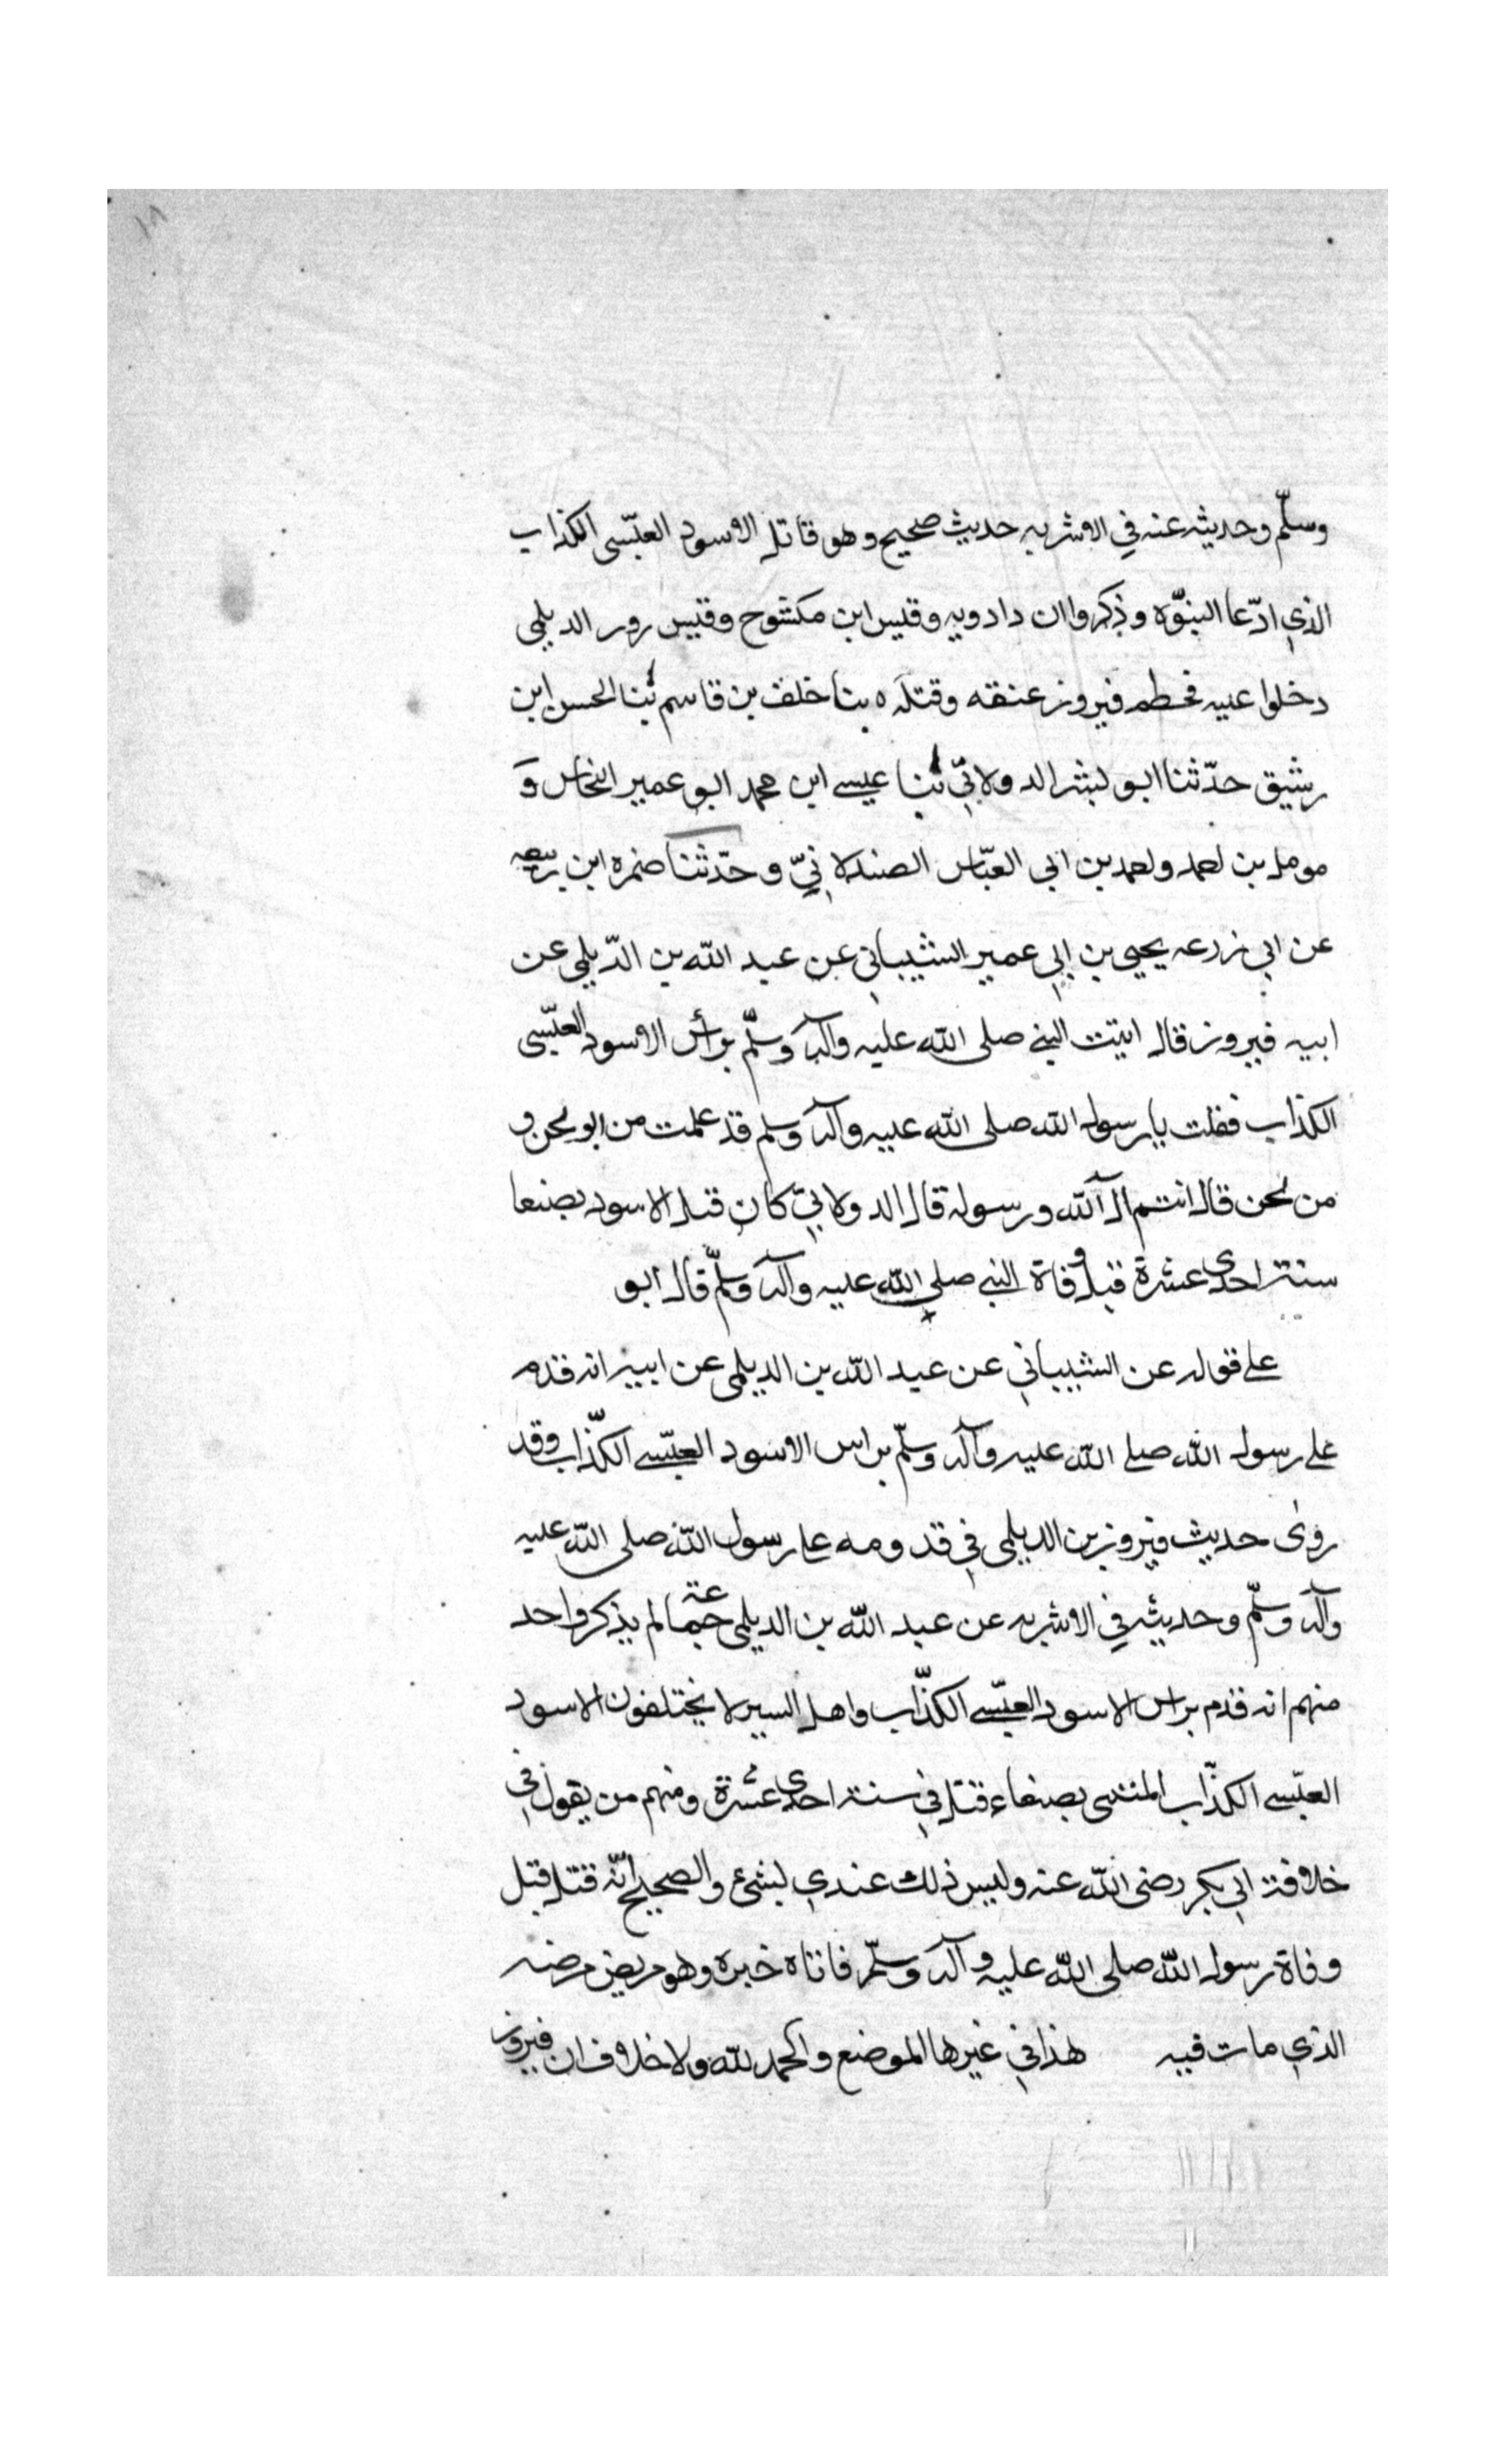 وسلّم وحديثه عنه في الاشربه حديث صحيح وهو قاتل الاسود العبّسى الكذاب
الذي ادّعا النبوّه وذكروا ان دادويه وقيس ابن مكشوح وقيس رور الديلمى
دخلوا عليه فحطم فيروز عنقه وقتله ه بنا خلف بن قاسم ثبنا الحسن ابن
رشيق حدّثنا ابو لبشر الدولابّي ثبنا عيسى ابن محمد ابو عمير النحاس و
مومل بن احمد واحمد بن ابي العبّاس الصندلانيّ وحدّثنا ضمره ابن ربيعه
عن ابي زرعه يحيى بن ابي عمير الشيباني عن عبد الله بن الدّيلمي عن
ابيه فيروز قال اتيت النبي صلى الله عليه وآله وسلّم برأس الاسود العبّسى
الكذاب فقلت يا رسول الله صلى الله عليه وآله وسلم قد علمت من ابو نحن و
من نحن قال انتم ال آلله ورسوله قال الدولابيّ كان قبل الاسود بصنعا
سنة احدى عشرة قبل وفاة النبي صلى الله عليه وآله وسلّم قال ابو
على قوله عن الشيباني عن عبد الله بن الديلمى عن ابيه انه قدم
على رسول الله صلى الله عليه وآله وسلّم براس الاسود العبّسى الكذّاب وقد
روى حديث فيروز بن الديلمى في قدومه على رسول الله صلى الله عليه
وآله وسلّم وحديثه في الاشربه عن عبد الله بن الديلمى لم يذكر واحد
منهم انه قدم براس الاسود العبّسى الكذّاب واهل السير لا يختلفون الاسود
العبّسى الكذّاب المنتسى بصنعاء قتل في سنة احدى عشرة ومنهم من يقول في
خلافة ابي بكر رضى الله عنه وليس ذلك عندي لبشئ والصحيح انّه قتل قبل
وفاة رسول الله صلى الله عليه وآله وسلّم فاتاه خبره وهو مريض مرضه
الذي مات فيه هذا في غير ها الموضع والحمد لله ولا خلاف ان فيروز